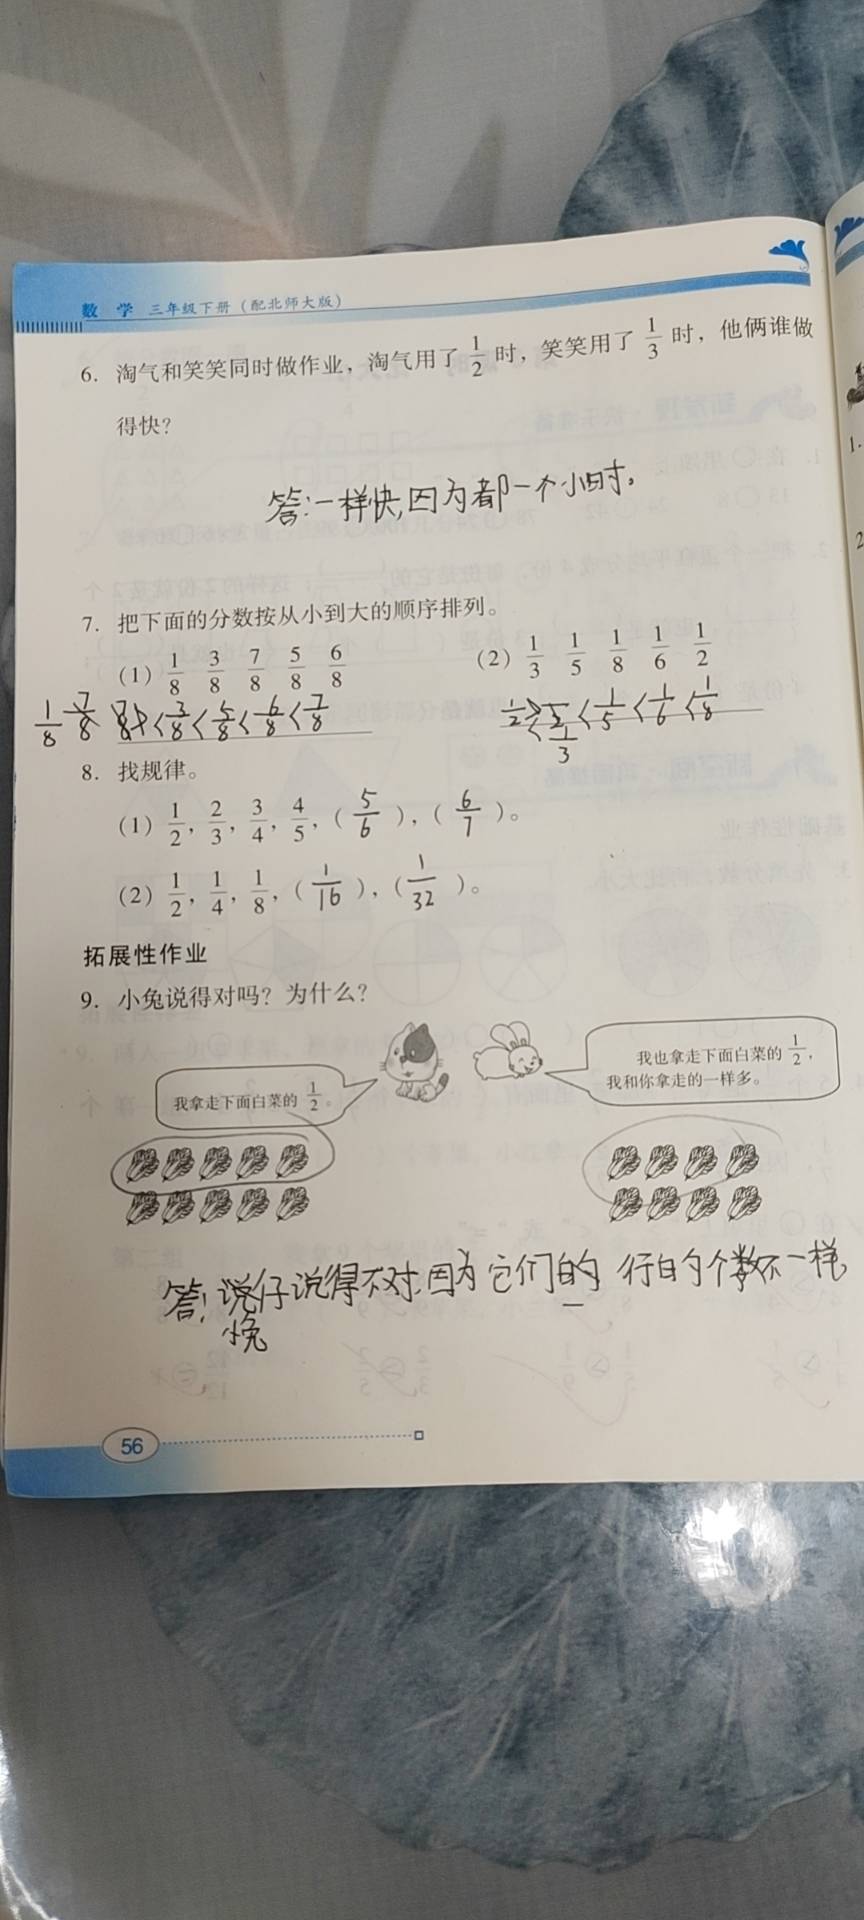 数 学 三年级下册（配北师大版）
6. 淘气和笑笑同时做作业，淘气用了 1/2 时，笑笑用了 1/3 时，他俩谁做
得快？
答:一样快,因为都一个小时。
7. 把下面的分数按从小到大的顺序排列。
(1) 1/8 3/8 7/8 5/8 6/8
(2) 1/3 1/5 1/8 1/6 1/2
1/8 < 3/8 < 5/8 < 6/8 < 7/8
1/2 < 1/3 < 1/5 < 1/6 < 1/8
8. 找规律。
(1) 1/2, 2/3, 3/4, 4/5, ( 5/6 ), ( 6/7 )。
(2) 1/2, 1/4, 1/8, ( 1/16 ), ( 1/32 )。
拓展性作业
9. 小兔说得对吗？为什么？
我拿走下面白菜的 1/2 。
我也拿走下面白菜的 1/2 ,
我和你拿走的一样多。
答: 说得不对,因为它们的 行的个数不一样
小兔
56